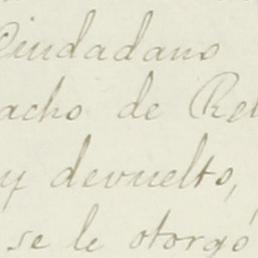 Ciudadano
acho de Rel
y devuelto,
se le otorgó